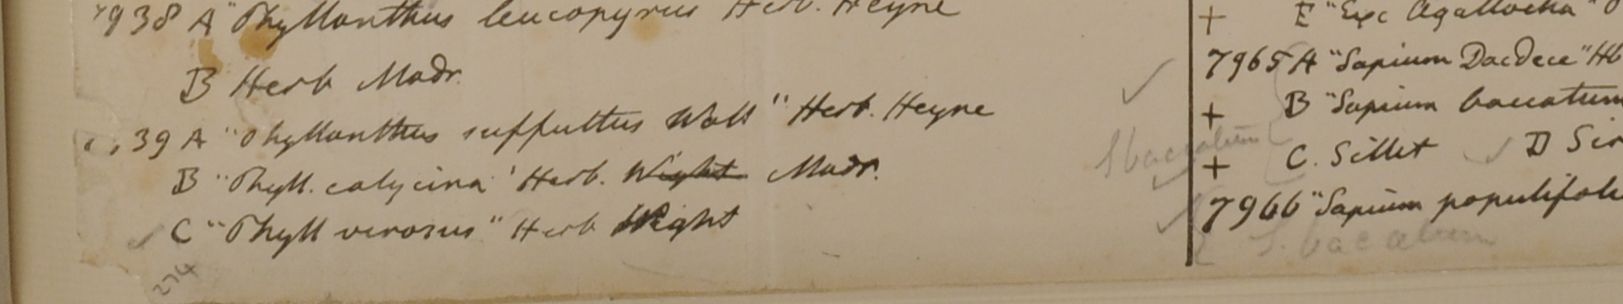 7938 A "Phyllanthus leucopyrus Herb. Heyne
B Herb Madr.
39 A "Phyllanthus suffultus Wall" Herb. Heyne
B "Phyll. calycina' Herb. Wight Madr.
C "Phyll virosus" Herb Wight
274
+ E "Exc Agallocha"
7965 A "Sapium Dacdece" Hb
+ B "Sapium baccatum
S baccatum
+ C. Sillet D
7966 "Sapium populifoli
S. baccatum